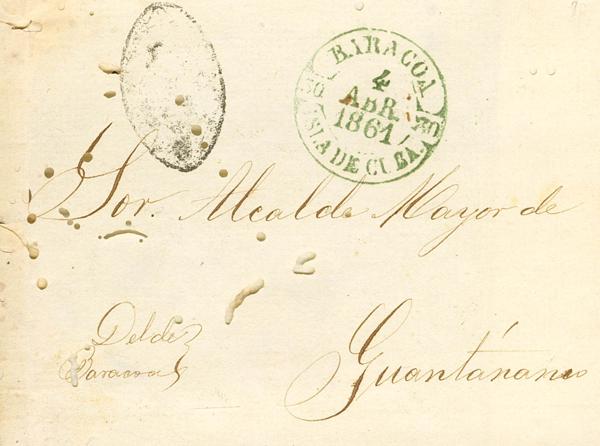 BARACOA
4
ABR.
1861
ISLA DE CUBA
Sor. Alcalde Mayor de
Del de
Baracoa
Guantánamo